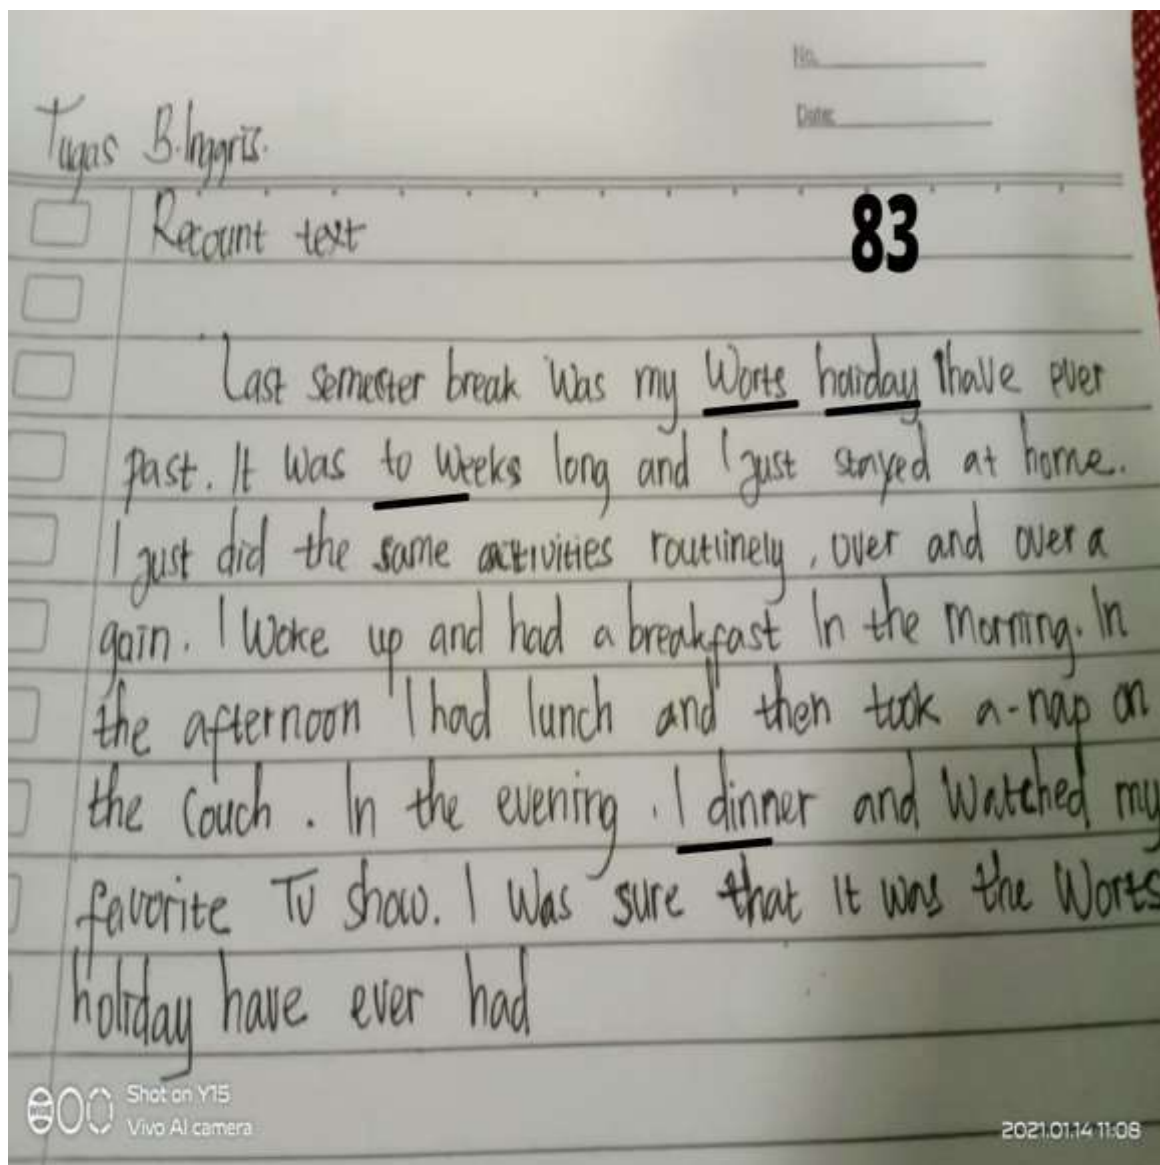 No.
Date:
Tugas B.Inggris.
Recount text
83
Last semester break was my Worts hoiday I have ever
past. It was to weeks long and I just stayed at home.
I just did the same activities routiinely, over and over a
gain. I Woke up and had a breakfast In the Morning. In
the afternoon I had lunch and then took a-nap on
the couch. In the evening. I dinner and Watched my
favorite TV show. I Was sure that It was the Worts
holiday have ever had
Shot on Y15
Vivo AI camera
2021.01.14 11:08